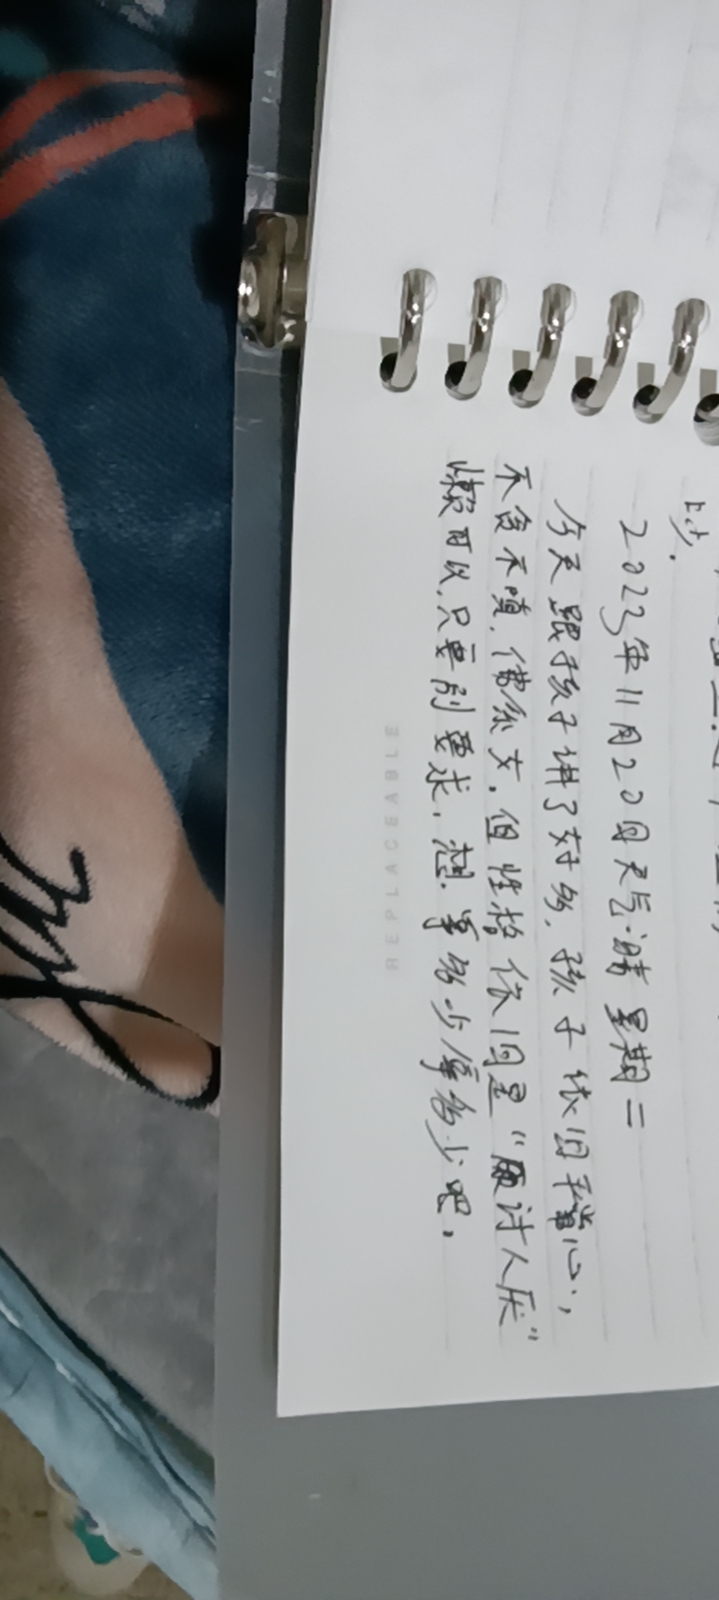 妙.
2023年11月20日天气:晴 星期二
今天跟孩子讲了好多.孩子依旧平常心,
不贪不嗔,佛系女.但性格依旧是“讨人厌”
懒可以,只要别要求,想.拿多少算多少吧.
REPLACEABLE